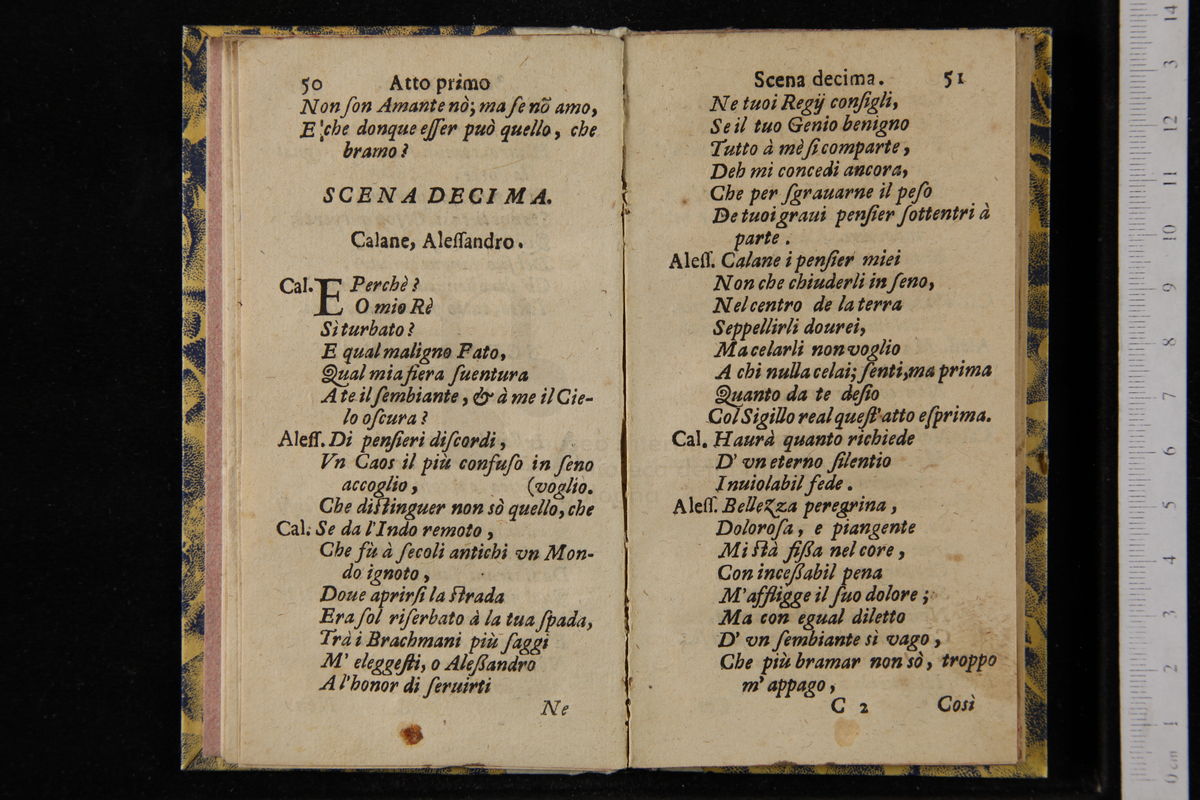 50 Atto primo
Non ſon Amante nò; ma ſe nõ amo,
E' che donque eſſer può quello, che
bramo?
SCENA DECIMA.
Calane, Aleſſandro.
Cal. E Perchè?
O mio Rè
Sì turbato?
E qual maligno Fato,
Qual mia fiera ſuentura
A te il ſembiante, & à me il Cie-
lo oſcura?
Aleſſ. Di penſieri diſcordi,
Vn Caos il più confuſo in ſeno
accoglio, (voglio.
Che diſtinguer non sò quello, che
Cal. Se da l'Indo remoto,
Che fù à ſecoli antichi vn Mon-
do ignoto,
Doue aprirſi la ſtrada
Era ſol riſerbato à la tua ſpada,
Trà i Brachmani più ſaggi
M' eleggeſti, o Aleßandro
A l'honor di ſeruirti
Ne
Scena decima. 51
Ne tuoi Regij conſigli,
Se il tuo Genio benigno
Tutto à mè ſi comparte,
Deh mi concedi ancora,
Che per ſgrauarne il peſo
De tuoi graui penſier ſottentri à
parte.
Aleſſ. Calane i penſier miei
Non che chiuderli in ſeno,
Nel centro de la terra
Seppellirli dourei,
Ma celarli non voglio
A chi nulla celai; ſenti, ma prima
Quanto da te deſio
Col Sigillo real queſt' atto eſprima.
Cal. Haurà quanto richiede
D' vn eterno ſilentio
Inuiolabil fede.
Aleſſ. Bellezza peregrina,
Doloroſa, e piangente
Mi ſtà fißa nel core,
Con inceßabil pena
M'affligge il ſuo dolore;
Ma con egual diletto
D' vn ſembiante sì vago,
Che più bramar non sò, troppo
m' appago,
C 2 Così
14
3
12
11
10
9
8
7
6
5
4
3
2
1
0 cm